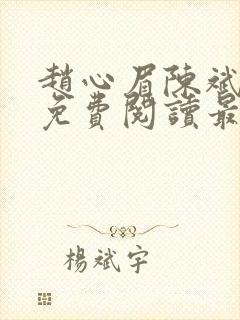 趙心眉陳斌
免費閱讀最
楊斌宇